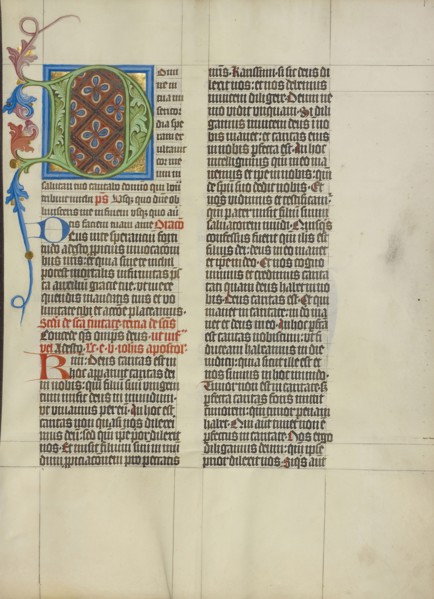 Domi
ne in
tua mi
sericor
dia spe
raui ex
ultauit
cor me
um in
salutari tuo cantabo domino qui bona
tribuit michi ps Usq̄quo dn̄e ob
liuisceris me in finem usq̄quo auer
tis faciem tuam a me Oracō
Deus in te sperantium forti
tudo adesto propicius inuocacōni
bus nr̄is: et quia sine te nichil
potest mortalis infirmitas p̄s
ta auxiliū gracie tue. ut in exe
quendis mandatis tuis et vo
luntate tibi et accōe placeamus.
Concede q̄s om̄ps deus.
l. e. b. iohīs apostoī.
Krmī: Deus caritas est. In
hoc apparuit caritas dei
in nobis: qm̄ filiū suū vnigeni
tum misit deus in mundum.
vt viuamus per eū. In hoc est
caritas non quasi nos dilexeri
mus deū: sed qm̄ ip̄e prior dilexit
nos. Et misit filium suū in mū
dum p̄piciacōem pro peccatis
nr̄is. Karissimi: si sic deus di
lexit nos: et nos debemus
inuicem diligere. Deum ne
mo vidit vnquam. Si dili
gamus inuicem deus in no
bis manet: et caritas eius
in nobis p̄fecta est. In hoc
intelligimus qm̄ in eo ma
nemus et ip̄e in nobis: qm̄
de sp̄u suo dedit nobis. Et
nos vidimus et testificam̄
qm̄ pater misit filiū suum
saluatorem mūdi. Quisq̄s
confessus fuerit qm̄ ih̄s est
filius dei: deus in eo manet
et ip̄e in deo. Et nos cognō
uimus et credimus carita
ti quam deus habet in no
bis. Deus caritas est. Et qui
manet in caritate: in deo ma
net et deus in eo. In hoc p̄fc̄a
est caritas nobiscum: vt fi
duciam habeamus in die
iudicij: quia sicut ille est et
nos sumus in hoc mundo.
Timor non est in caritate: s;
p̄fecta caritas foras mittit
timorem: qm̄ timor penam
habet. Qui aut̄ timet non ē
p̄fectus in caritate. Nos ergo
diligamus deum: qm̄ ip̄se
prior dilexit nos. Siq̄s aut̄